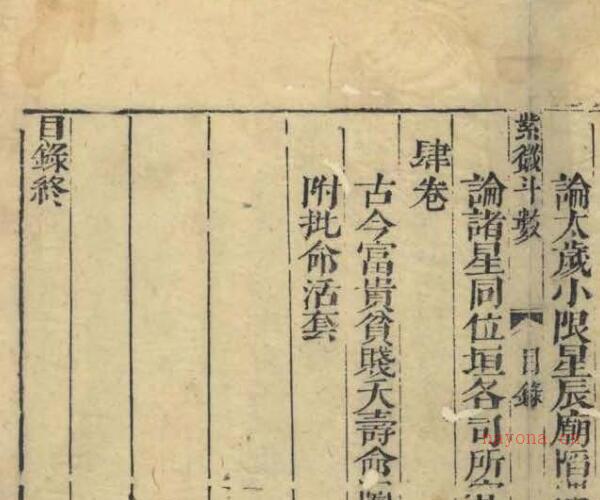 論太歲小限星辰廟陷
紫微斗數 目錄
論諸星同位垣各司所
肆卷
古今富貴貧賤夭壽命
附批命活套
目錄終